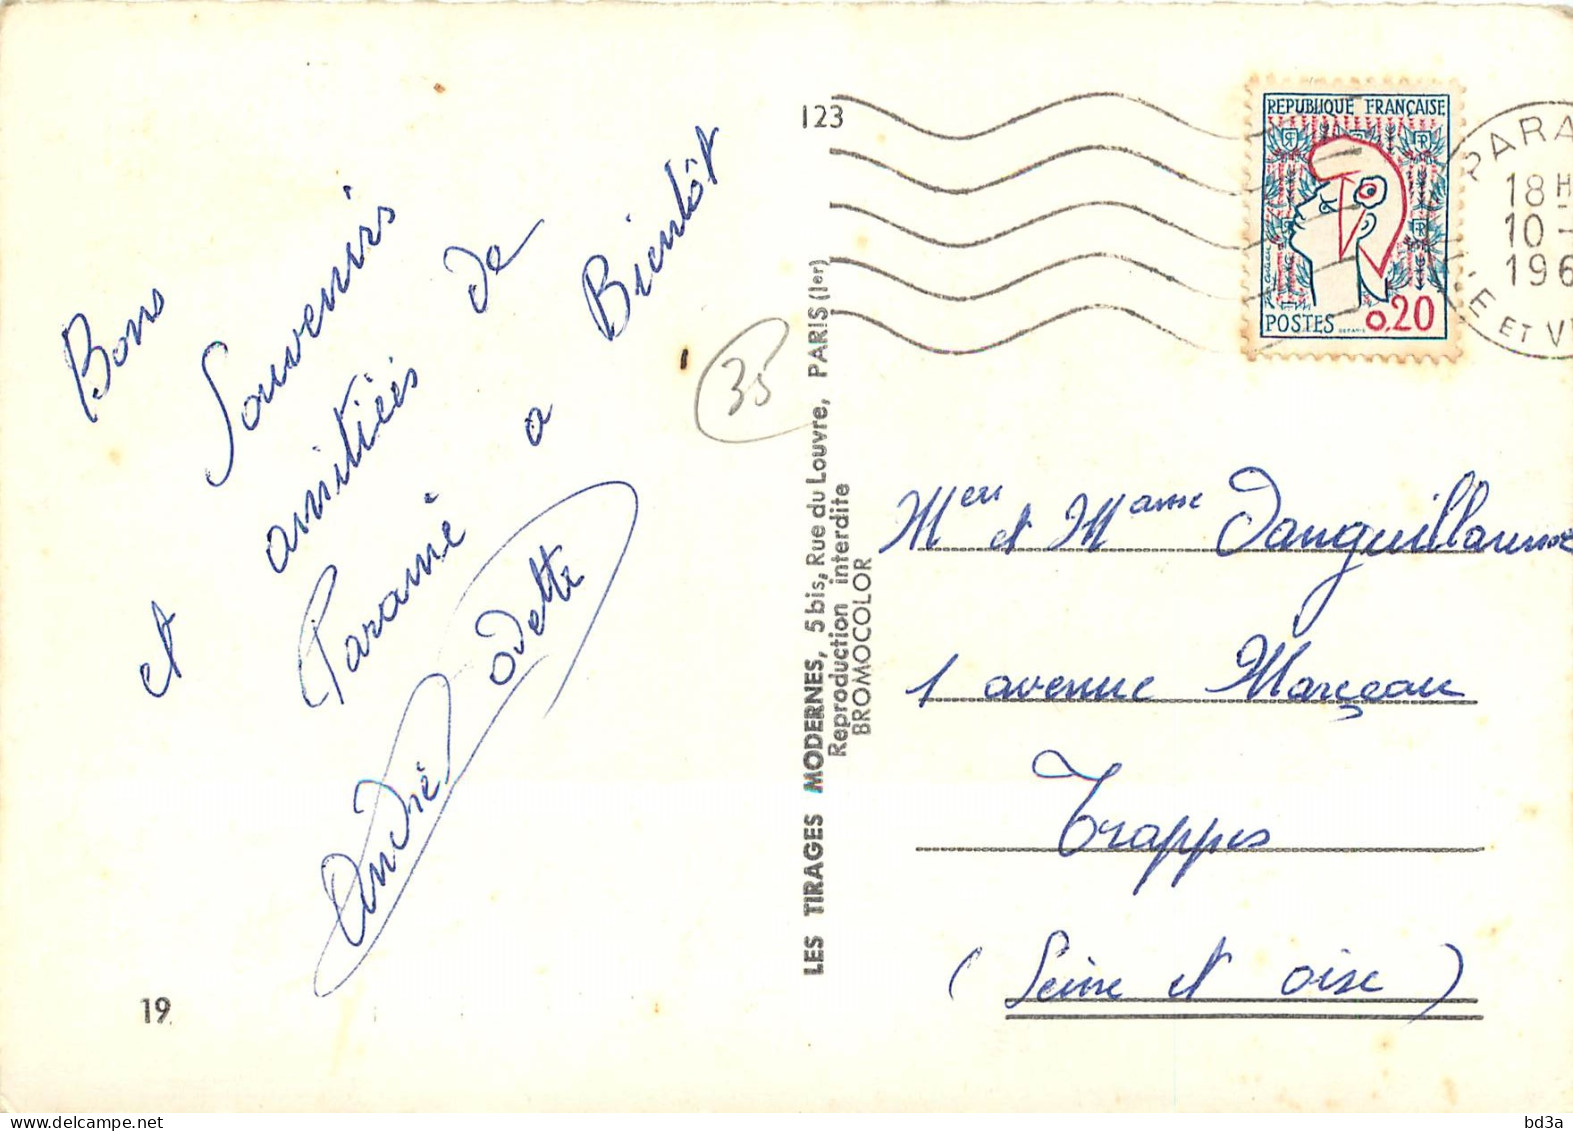 Bons
Souvenirs
et amitiés de
Paramé a Bientôt
André Odette
19
123
35
LES TIRAGES MODERNES, 5 bis, Rue du Louvre, PARIS (1er)
Reproduction interdite
BROMOCOLOR
REPUBLIQUE FRANÇAISE
POSTES 0,20
PARA
18 H
10 -
196
E ET V
Meu et Mame Danguillaume
1 avenue Marçeau
Trappes
(Seine et oise)
bd3a